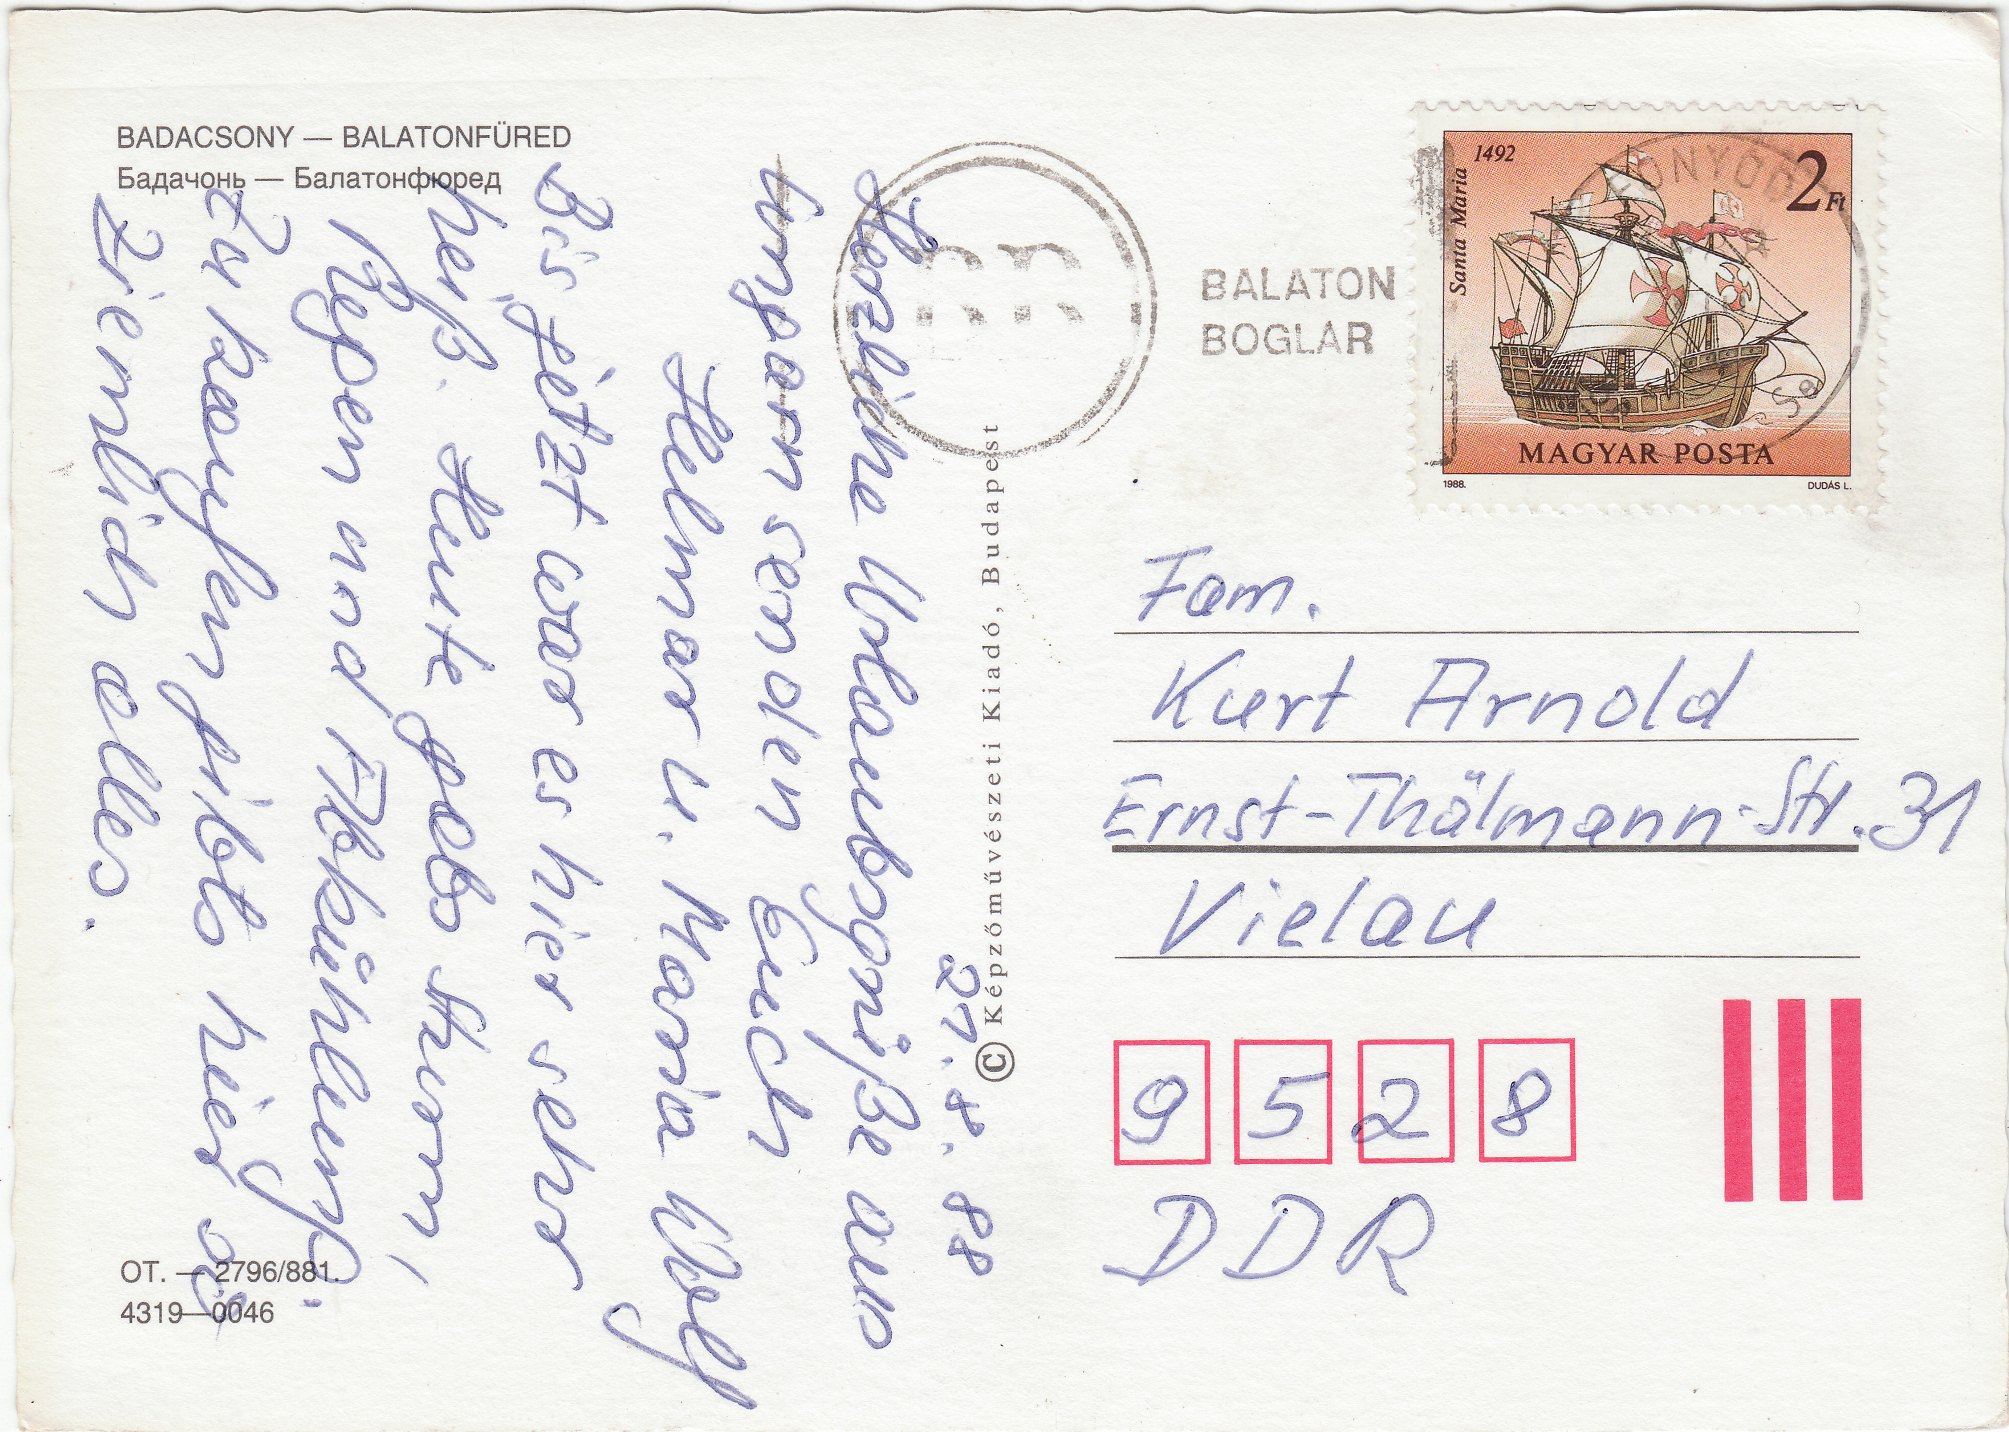 BADACSONY — BALATONFÜRED
Бадачонь — Балатонфюред
27. 8. 88
Herzliche Urlaubsgrüße aus
Ungarn senden Euch
Helmar u. Maria Wolf
Bis jetzt war es hier sehr
heiß. Heute gabs Sturm,
Regen und Abkühlung.
Zu kaufen gibts hier so
ziemlich alles.
OT. — 2796/881.
4319—0046
© Képzőművészeti Kiadó, Budapest
BALATON
BOGLAR
FONYOD
1492
Santa Maria
2 Ft
MAGYAR POSTA
1988.
DUDÁS L.
Fam.
Kurt Arnold
Ernst-Thälmann-Str. 31
Vielau
9528
DDR